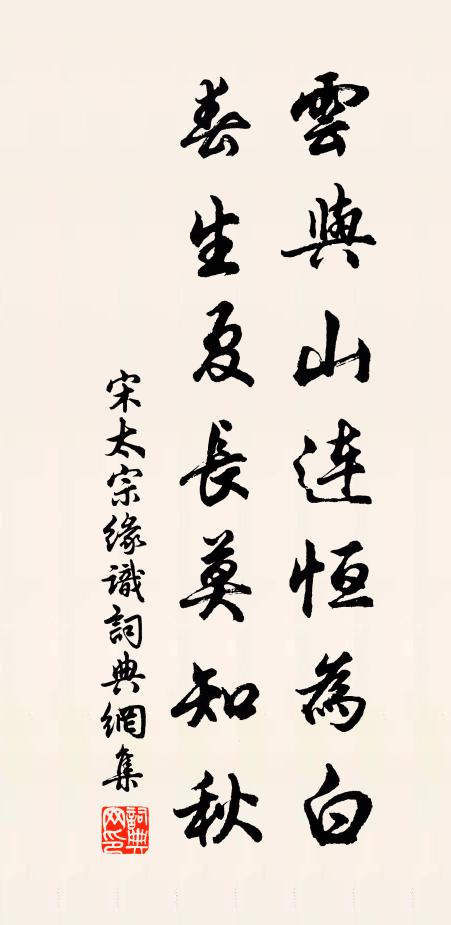 雲與山連恒為白
春生夏長莫知秋
宋太宗緣識詞典網集
詞典網印